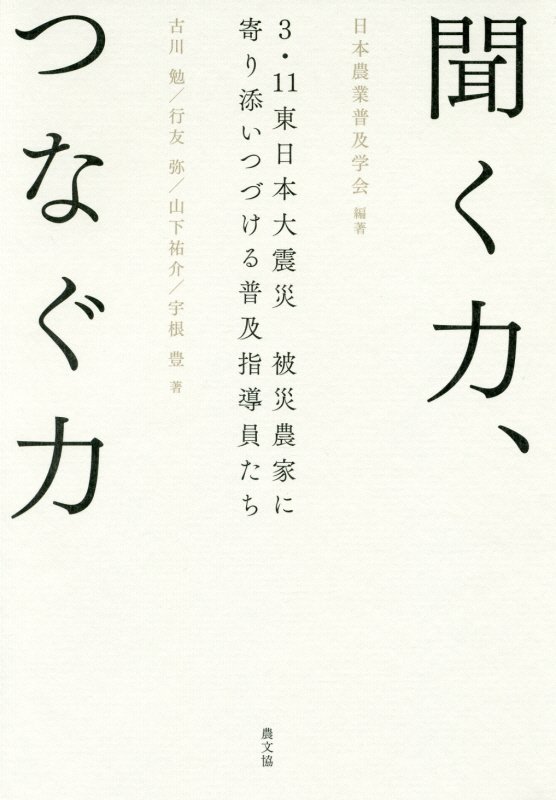 聞く力、
つなぐ力
日本農業普及学会 編著
3・11東日本大震災 被災農家に
寄り添いつづける普及指導員たち
古川 勉／行友 弥／山下祐介／宇根 豊 著
農文協